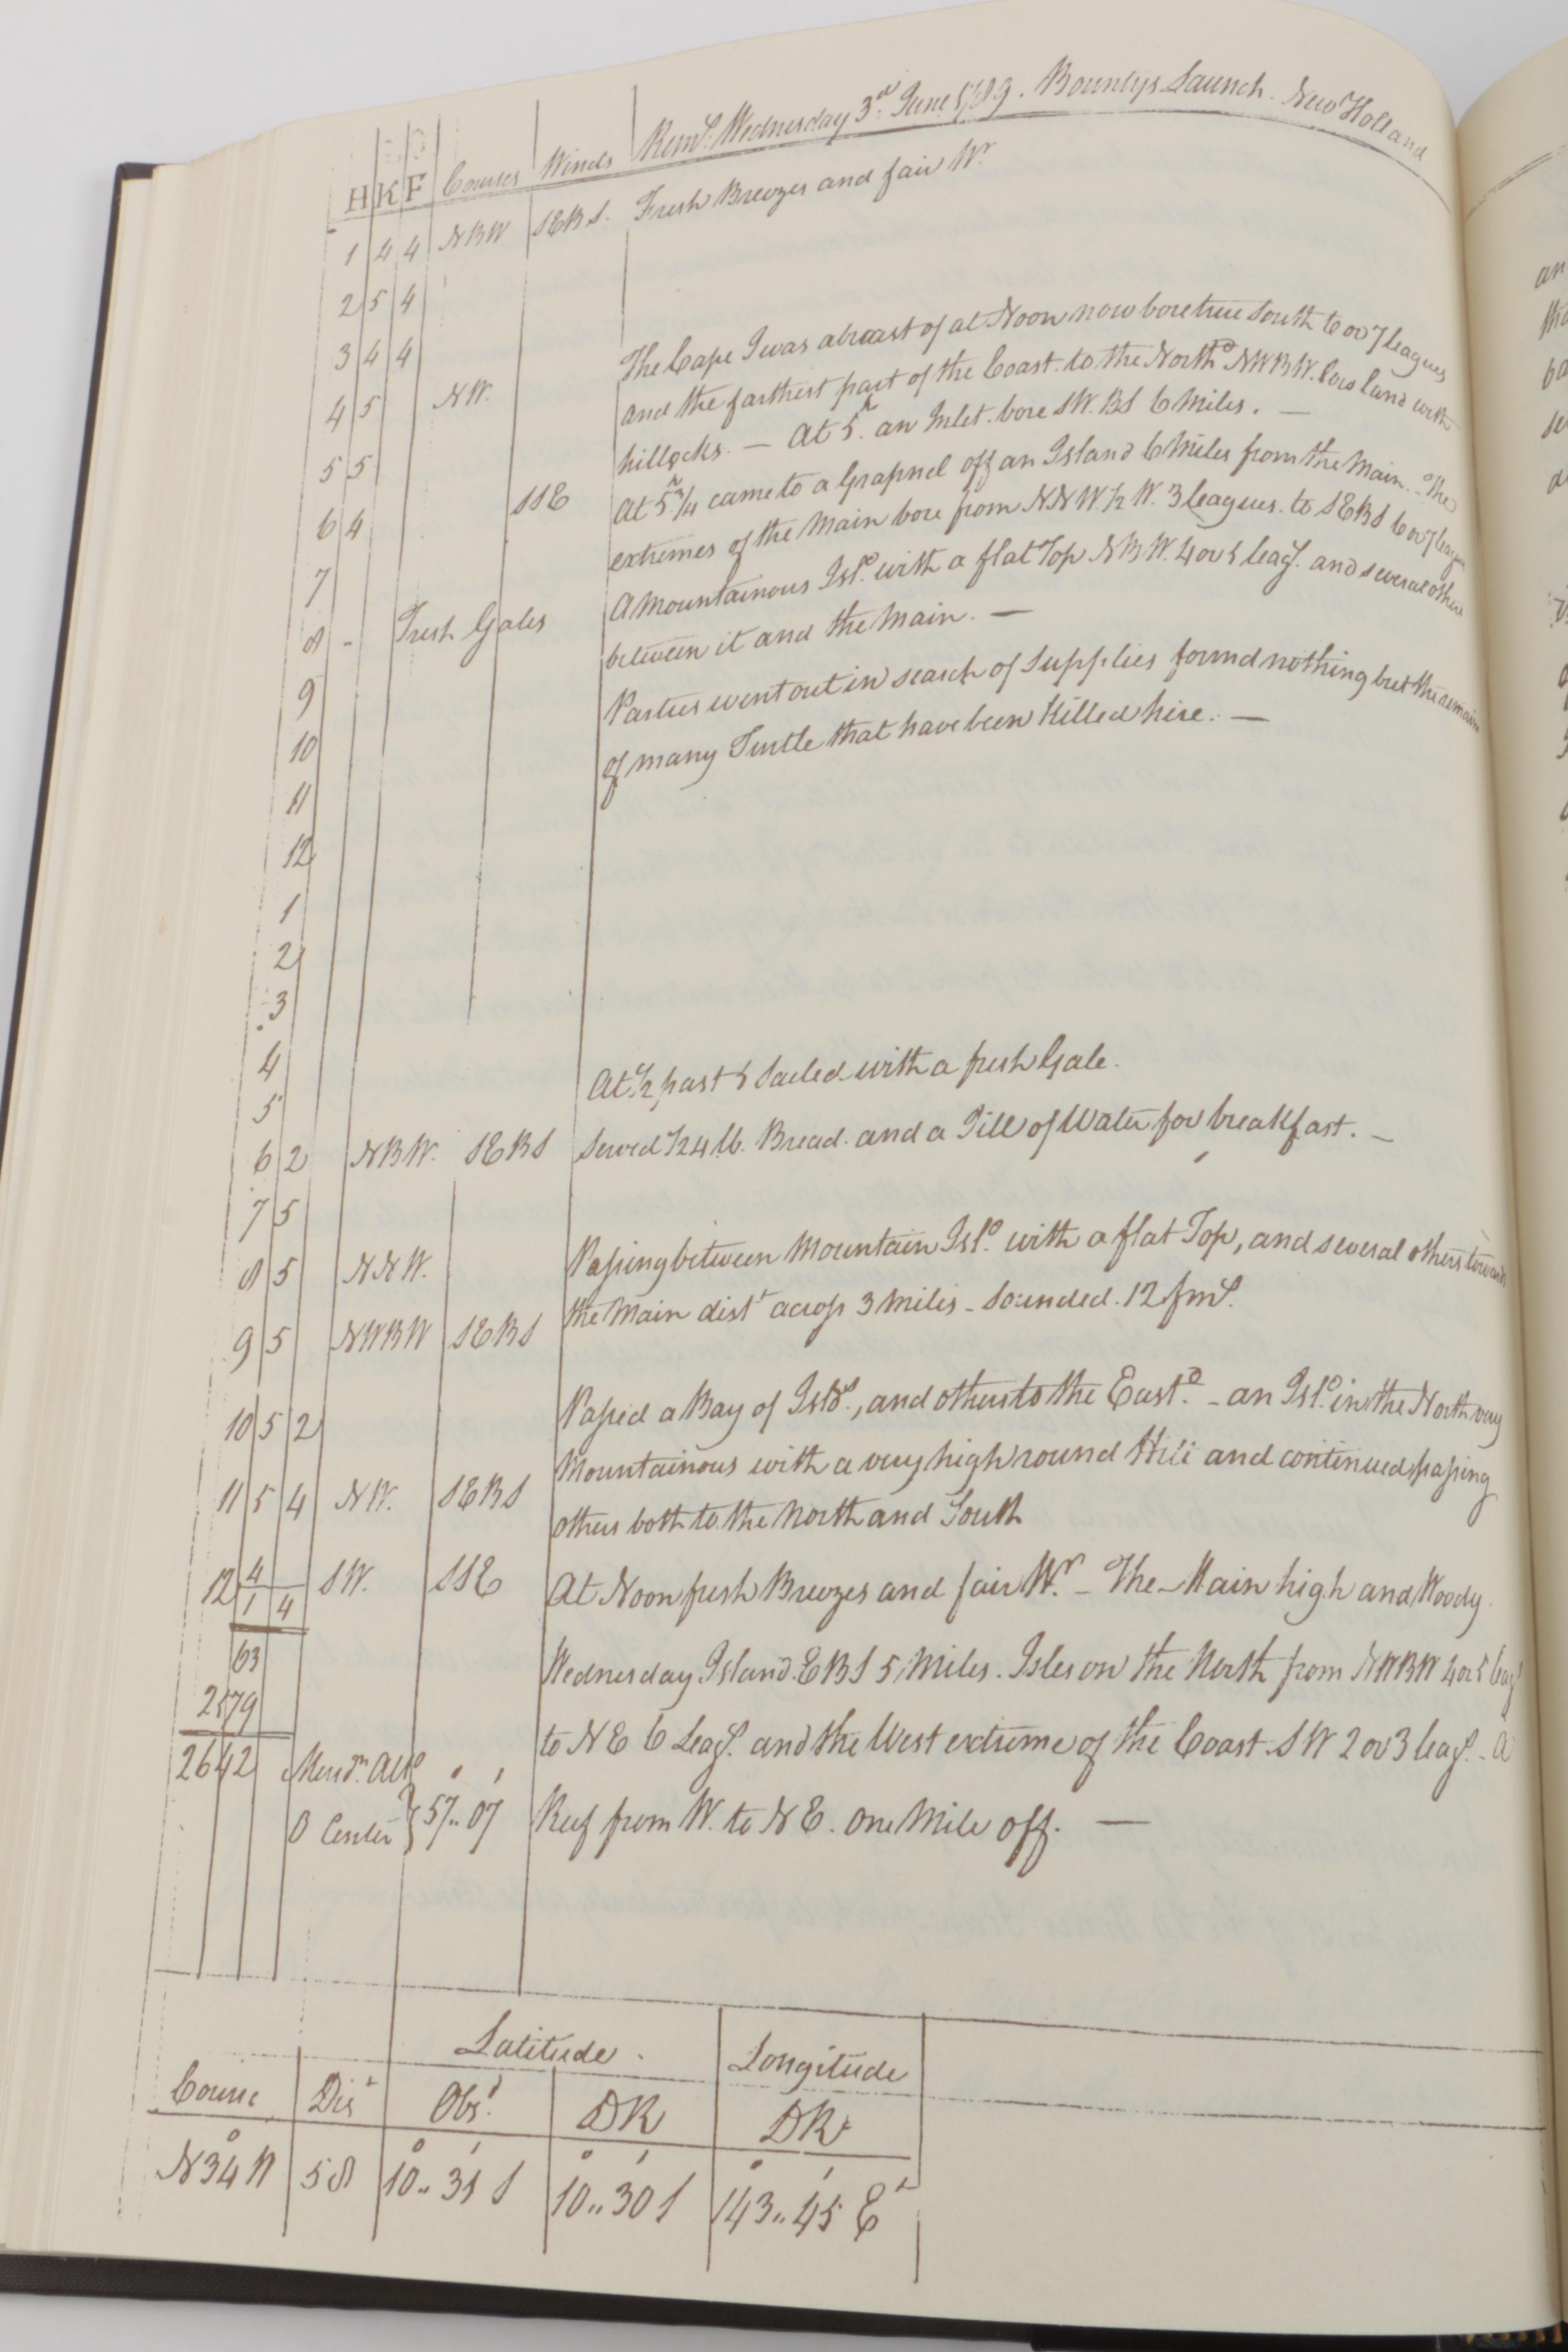 Remks. Wednesday 3d. June 1789. Bountys Launch. New Holland
H K F Courses Winds
1 4 4 NBW SEBS. Fresh Breezes and fair Wr.
2 5 4
3 4 4 The Cape I was abreast of at Noon now bore true South 6 or 7 leagues
4 5 NW. and the farthest part of the Coast to the Northd NWBW. low land with
hillocks. — At 5h. an Inlet bore SW.BS 6 Miles. —
5 5
6 4 SSE At 5h 3/4 came to a Grapnel off an Island 6 Miles from the Main. - The
7 extremes of the Main bore from NNW.1/2 W. 3 leagues. to SEBS 6 or 7 leagues
8 - Fresh Gales A Mountainous Isld. with a flat Top NBW. 4 or 5 leags. and several others
between it and the Main. —
9 Parties went out in search of Supplies found nothing but the remains
10 of many Turtle that have been killed here. —
11
12
1
2
3
4
5 At 1/2 past 5 Sailed with a fresh Gale.
6 2 NBW. SEBS Served 1/24 lb. Bread. and a Gill of Water for breakfast. —
7 5
8 5 NNW. Passing between Mountain Isld. with a flat Top, and several others towards
9 5 NWBW SEBS the Main distt across 3 Miles - Sounded. 12 fms.
10 5 2 Passed a Bay of Islds., and others to the Eastd. - an Isld. in the North very
11 5 4 NW. SEBS Mountainous with a very high round Hill and continued passing
others both to the North and South
12 4 SW. SSE At Noon fresh Breezes and fair Wr. - The Main high and Woody.
1 4
63 Wednesday Island. EBS 5 Miles. Isles on the North from NWBW 4 or 5 leags
2579
2642 to NE 6 Leags. and the West extreme of the Coast SW 2 or 3 leags. - A
Meridn. Altd
O Center } 57.. 07 Reef from W. to NE. One Mile off. —
Latitude. Longitude
Course Dist Obsd. DR DR
N34W 58 10.. 31 S 10.. 30 S 143.. 45 Et